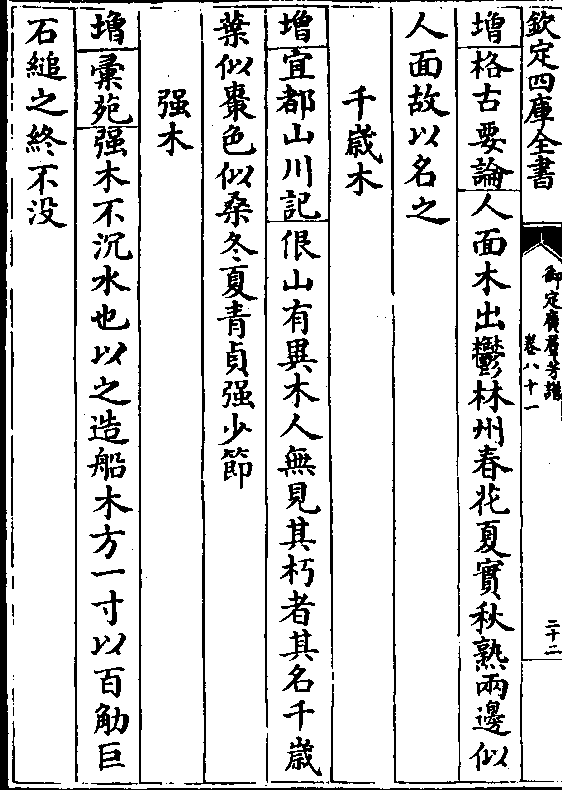 欽定四庫全書
御定廣羣芳譜
卷八十一
二十二
增格古要論人面木出鬱林州春花夏實秋熟兩邊似
人面故以名之
千歲木
增宜都山川記佷山有異木人無見其朽者其名千歲
葉似棗色似桑冬夏青貞强少節
强木
增彚苑强木不沉水也以之造船木方一寸以百觔巨
石縋之終不没